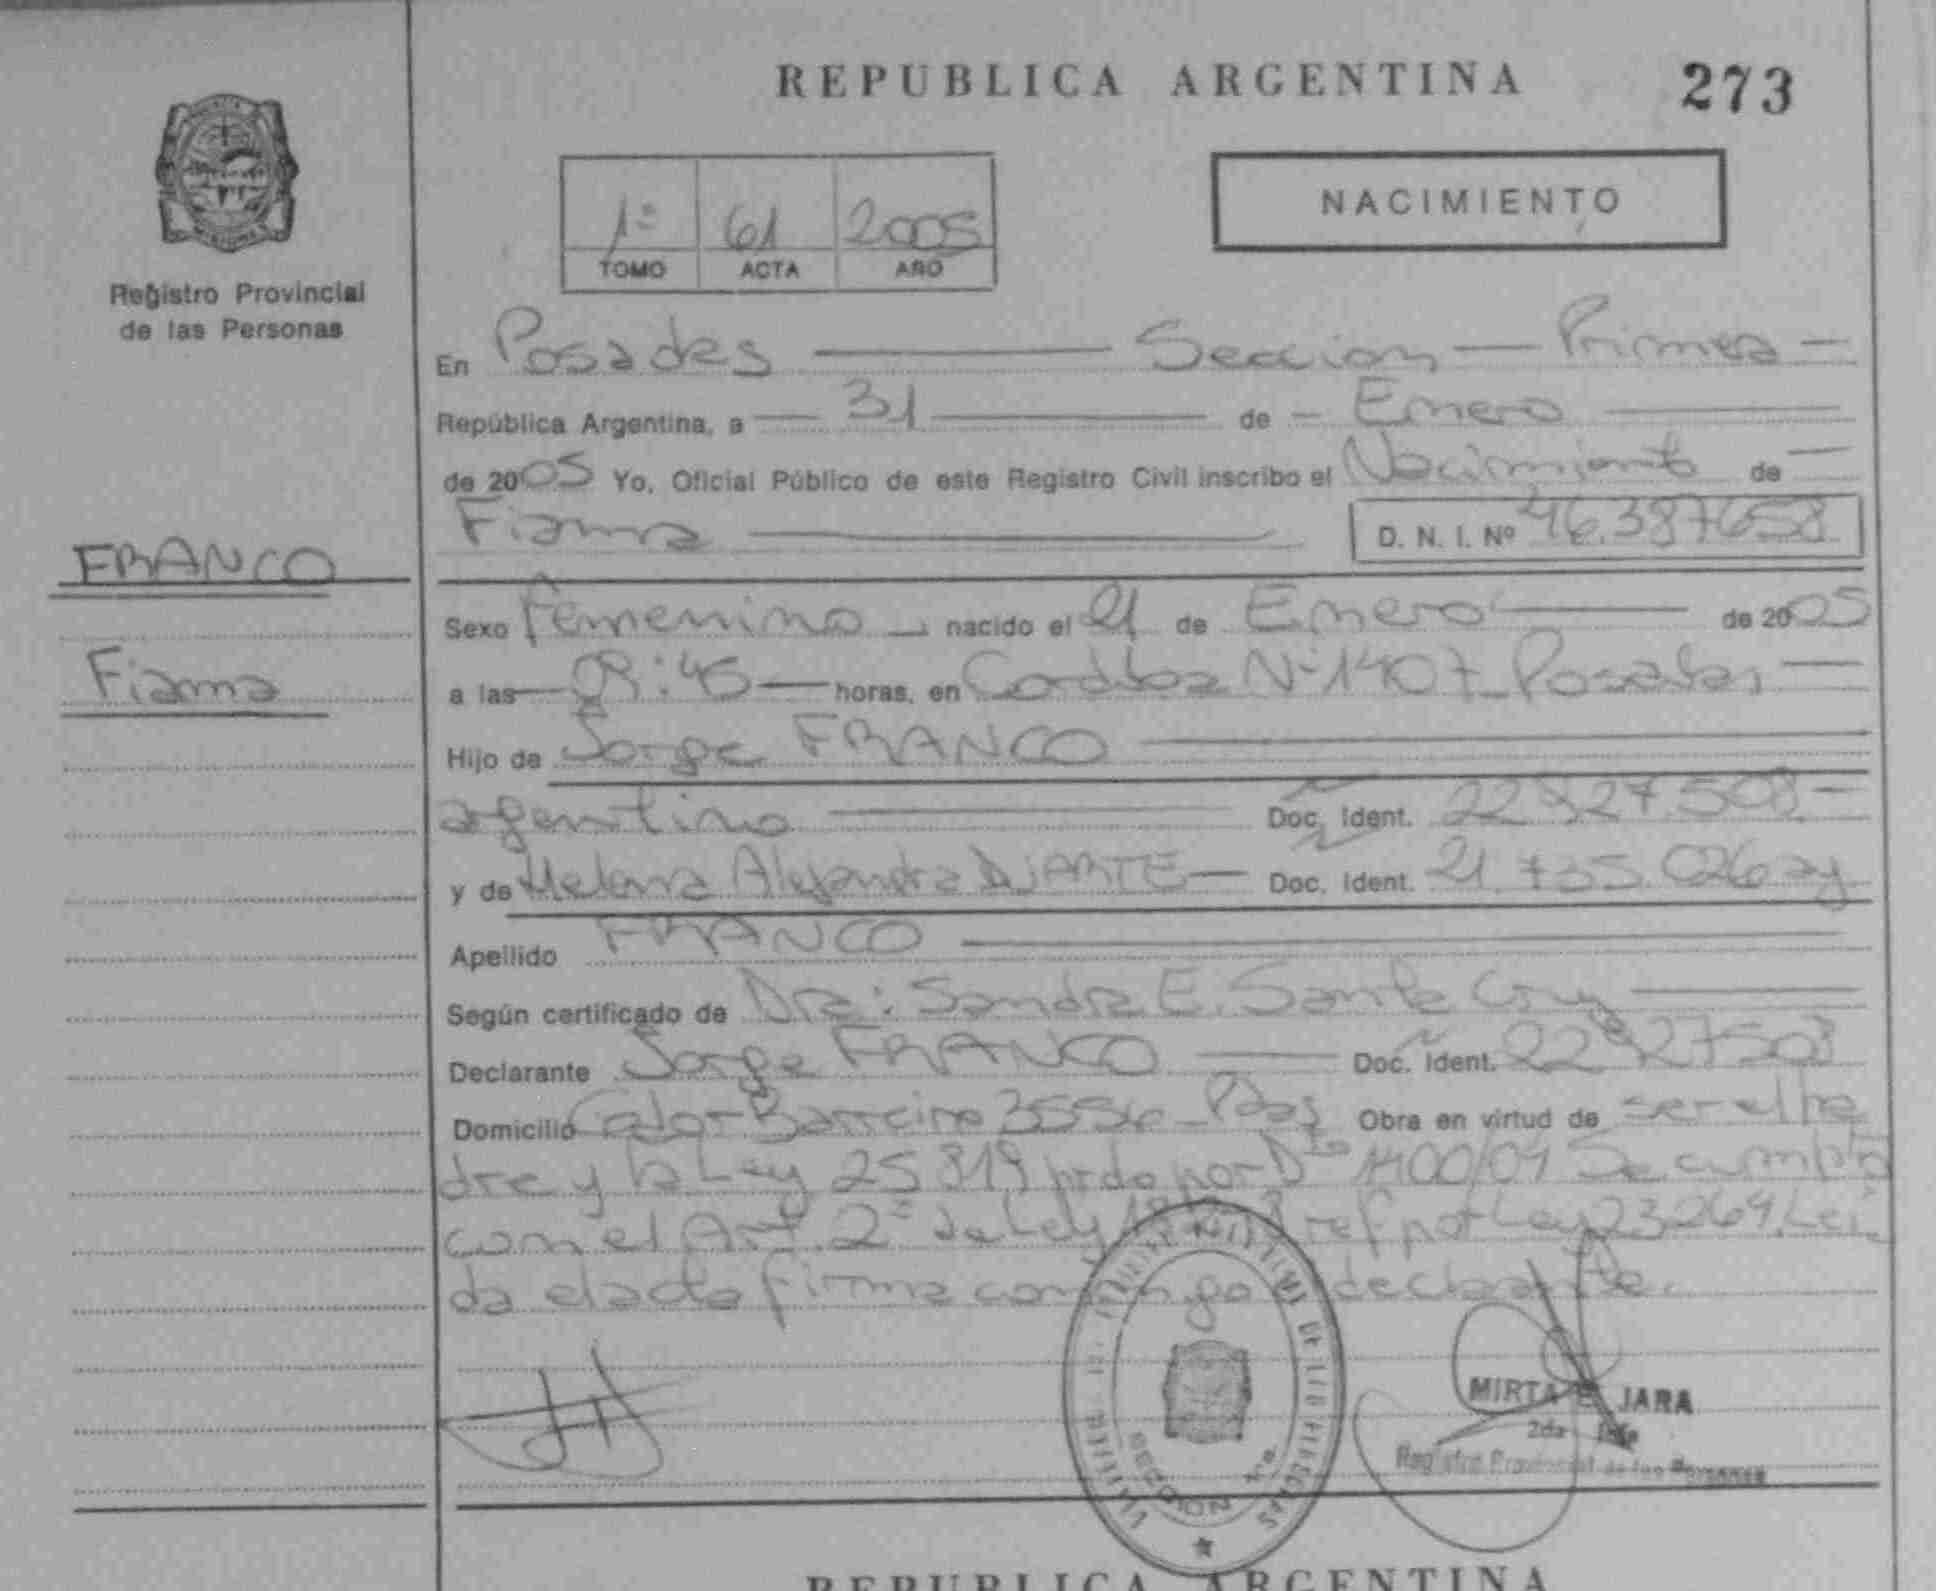 REPUBLICA ARGENTINA
273
NACIMIENTO
1º 61 2005
TOMO ACTA AÑO
Registro Provincial
de las Personas
En Posadas Seccion Primera
República Argentina, a 31 de Enero
de 2005 Yo, Oficial Público de este Registro Civil inscribo el Nacimiento de
Fiama D. N. I. Nº 46.387658
FRANCO
Fiama
Sexo femenino nacido el 21 de Enero de 2005
a las 09:45 horas, en Cordoba Nº 1407 Posadas
Hijo de Jorge FRANCO
argentino Doc. Ident. 22.927.508
y de Alejandra DUARTE Doc. Ident. 21.735.026
Apellido FRANCO
Según certificado de Dra: Sandra E. Santa Cruz
Declarante Jorge FRANCO Doc. Ident. 22927508
Domicilio Barreiro Pdas Obra en virtud de ser el Pa
dre y la Ley 25819 por Dto 1400/04 Se cumplió
con el Art. 2º de Ley ref por Ley 23264. Leí
da el acta firma conmigo declarante.
MIRTA E. JARA
2da Jefe
Registro Provincial de las Personas
SECCION 1ra.
REPUBLICA ARGENTINA